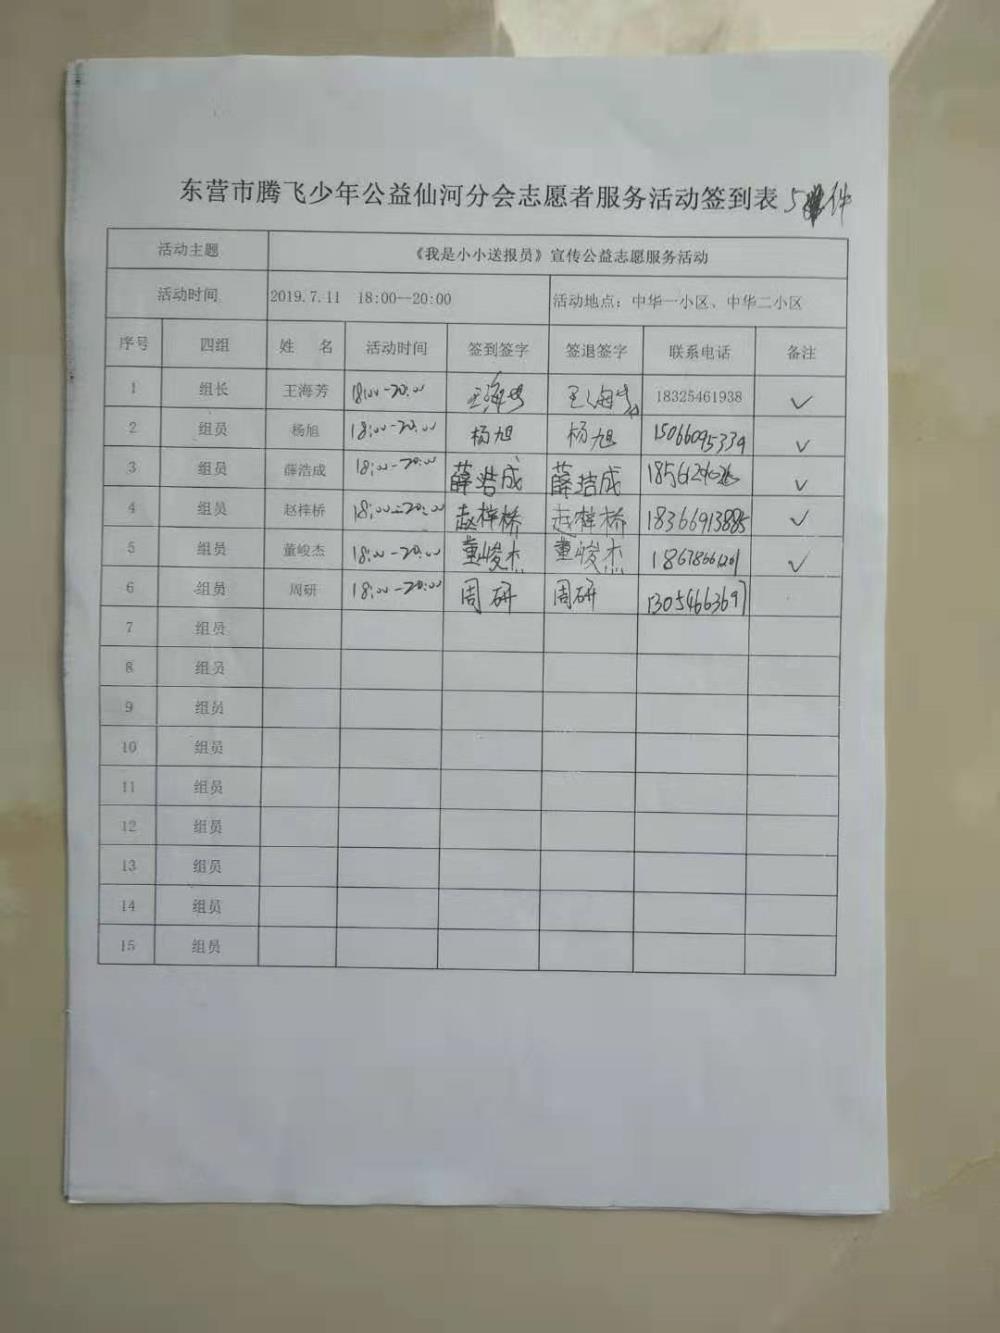 东营市腾飞少年公益仙河分会志愿者服务活动签到表 5 件
活动主题 《我是小小送报员》宣传公益志愿服务活动
活动时间 2019.7.11 18:00--20:00 活动地点：中华一小区、中华二小区
序号 四组 姓 名 活动时间 签到签字 签退签字 联系电话 备注
1 组长 王海芳 18:00-20:00 王海芳 王海芳 18325461938 ✓
2 组员 杨旭 18:00-20:00 杨旭 杨旭 15066095339 ✓
3 组员 薛浩成 18:00-20:00 薛浩成 薛浩成 ✓
4 组员 赵梓桥 18:00-20:00 赵梓桥 赵梓桥 18366913885 ✓
5 组员 董峻杰 18:00-20:00 董峻杰 董峻杰 ✓
6 组员 周研 18:00-20:00 周研 周研 13054663697
7 组员
8 组员
9 组员
10 组员
11 组员
12 组员
13 组员
14 组员
15 组员